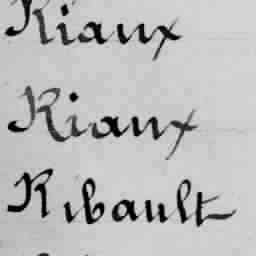 Riaux
Riaux
Ribault